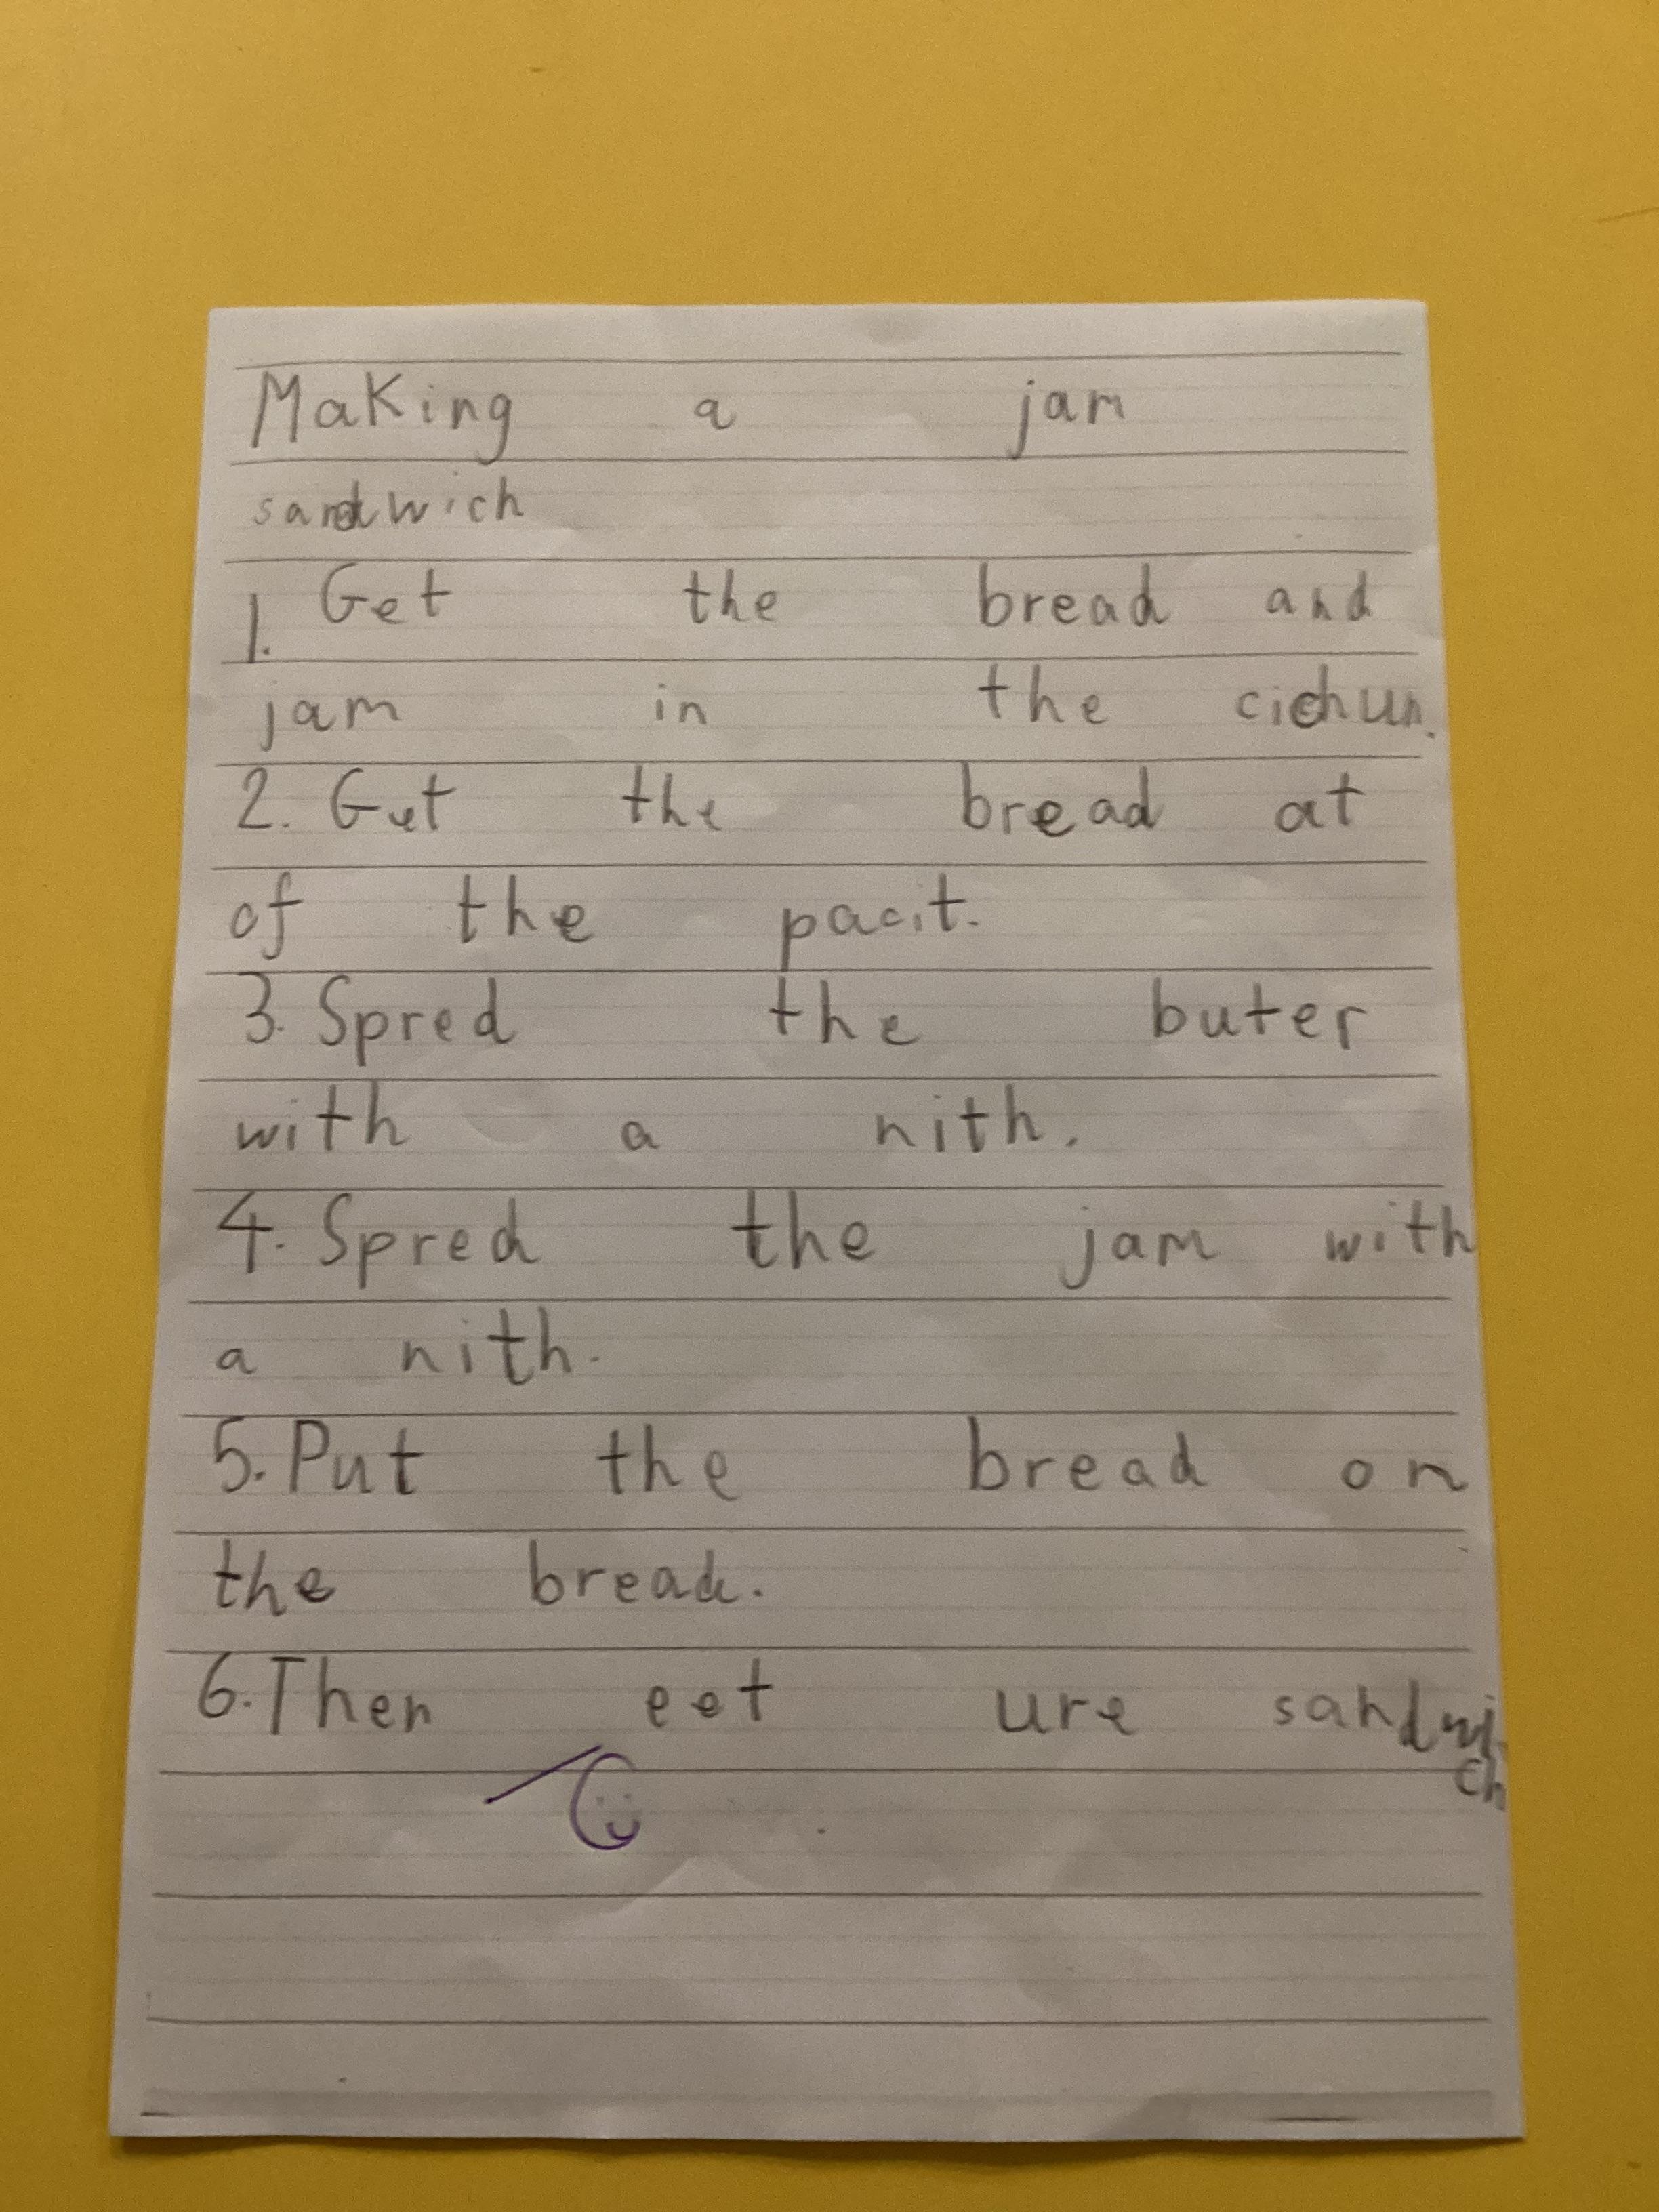 Making a jam
sandwich
1. Get the bread and
jam in the cichun.
2. Get the bread at
of the pacit.
3. Spred the buter
with a nith.
4. Spred the jam with
a nith.
5. Put the bread on
the bread.
6. Then eet ure sandwi
ch